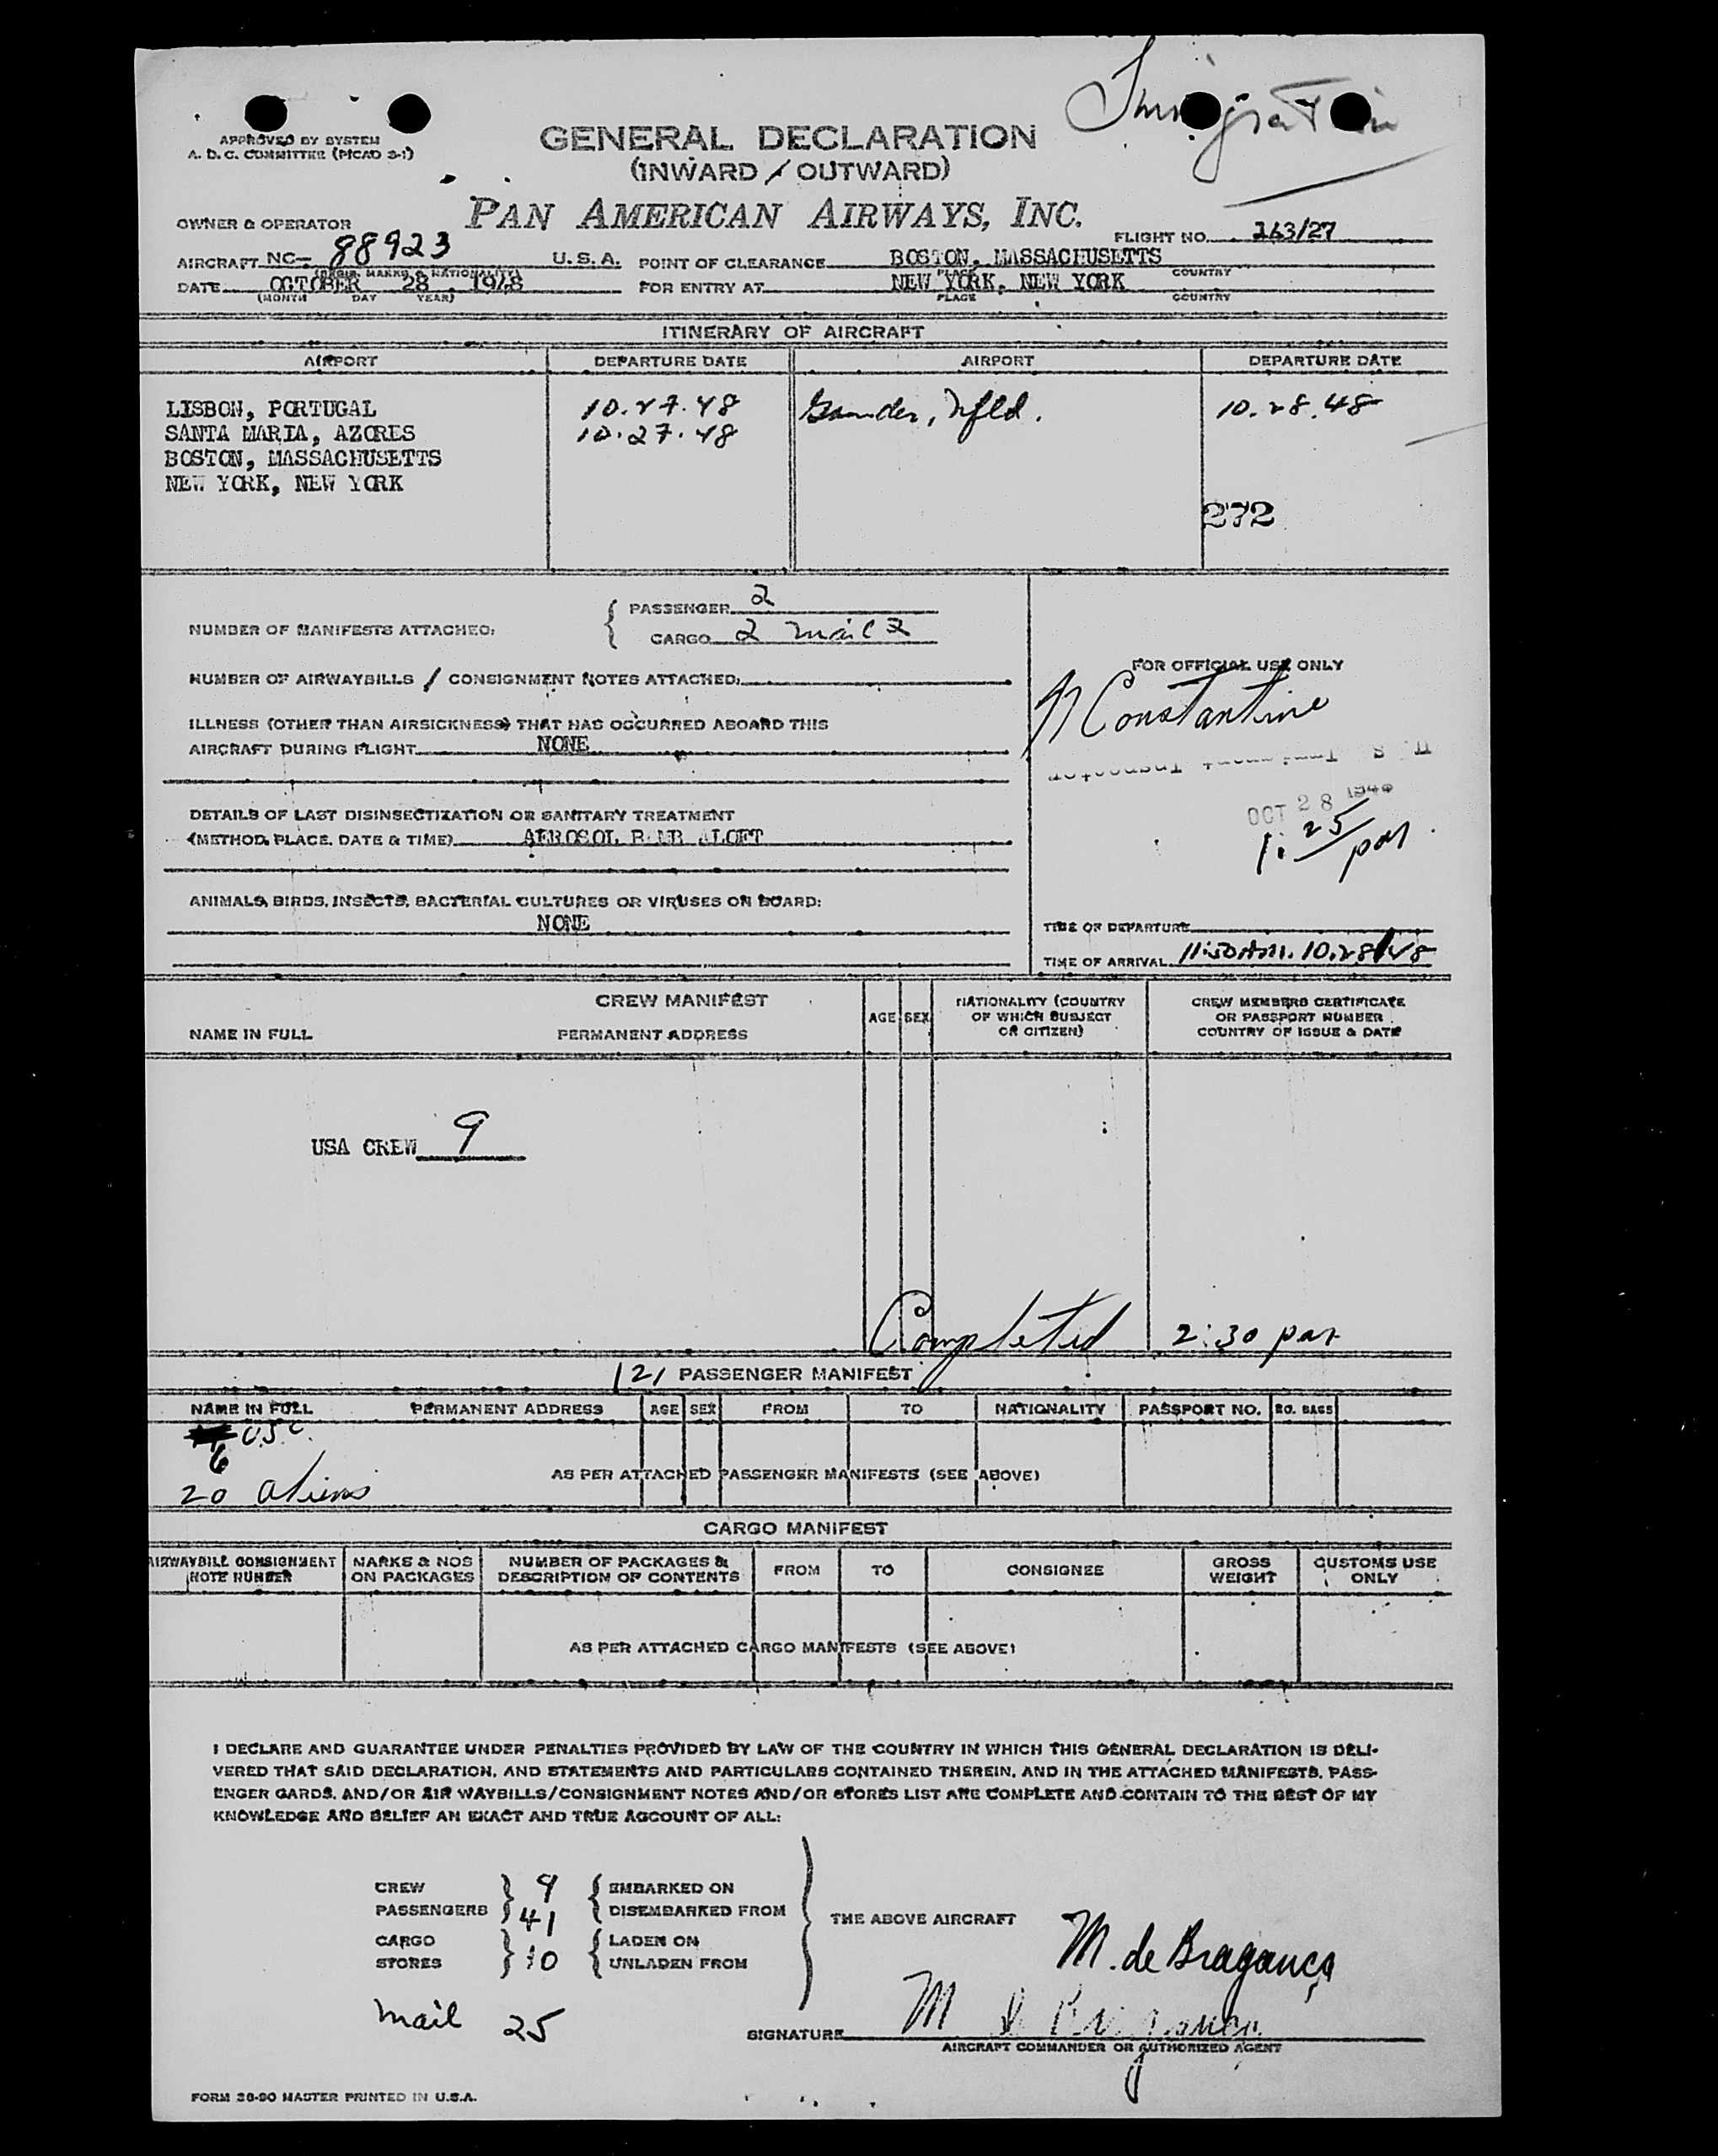 Immigration
APPROVED BY SYSTEM
A. D. C. COMMITTEE (PICAO S-1)
GENERAL DECLARATION
(INWARD / OUTWARD)
OWNER & OPERATOR PAN AMERICAN AIRWAYS, INC. FLIGHT NO. 163/27
AIRCRAFT NC- 88923 U. S. A. POINT OF CLEARANCE BOSTON, MASSACHUSETTS
(REGIS. MARKS & NATIONALITY) PLACE COUNTRY
DATE OCTOBER 28, 1948 FOR ENTRY AT NEW YORK, NEW YORK
(MONTH DAY YEAR) PLACE COUNTRY
ITINERARY OF AIRCRAFT
AIRPORT DEPARTURE DATE AIRPORT DEPARTURE DATE
LISBON, PORTUGAL 10.27.48 Gander, Nfld. 10.28.48
SANTA MARIA, AZORES 10.27.48
BOSTON, MASSACHUSETTS
NEW YORK, NEW YORK
272
NUMBER OF MANIFESTS ATTACHED: PASSENGER 2
CARGO 2 mail 2
NUMBER OF AIRWAYBILLS / CONSIGNMENT NOTES ATTACHED:
ILLNESS (OTHER THAN AIRSICKNESS) THAT HAS OCCURRED ABOARD THIS
AIRCRAFT DURING FLIGHT NONE
DETAILS OF LAST DISINSECTIZATION OR SANITARY TREATMENT
(METHOD, PLACE, DATE & TIME) AEROSOL BOMB ALOFT
ANIMALS, BIRDS, INSECTS, BACTERIAL CULTURES OR VIRUSES ON BOARD:
NONE
FOR OFFICIAL USE ONLY
N Constantine
U. S. Immigrant Inspector
OCT 28 1948
1:25 pm
TIME OF DEPARTURE
TIME OF ARRIVAL 11:50 AM. 10.28.48
CREW MANIFEST
NAME IN FULL PERMANENT ADDRESS AGE SEX NATIONALITY (COUNTRY OF WHICH SUBJECT OR CITIZEN) CREW MEMBERS CERTIFICATE OR PASSPORT NUMBER COUNTRY OF ISSUE & DATE
USA CREW 9
Completed 2:30 pm
121 PASSENGER MANIFEST
NAME IN FULL PERMANENT ADDRESS AGE SEX FROM TO NATIONALITY PASSPORT NO. NO. BAGS
U.S.C.
6
20 aliens
AS PER ATTACHED PASSENGER MANIFESTS (SEE ABOVE)
CARGO MANIFEST
AIRWAYBILL CONSIGNMENT NOTE NUMBER MARKS & NOS ON PACKAGES NUMBER OF PACKAGES & DESCRIPTION OF CONTENTS FROM TO CONSIGNEE GROSS WEIGHT CUSTOMS USE ONLY
AS PER ATTACHED CARGO MANIFESTS (SEE ABOVE)
I DECLARE AND GUARANTEE UNDER PENALTIES PROVIDED BY LAW OF THE COUNTRY IN WHICH THIS GENERAL DECLARATION IS DELI-
VERED THAT SAID DECLARATION, AND STATEMENTS AND PARTICULARS CONTAINED THEREIN, AND IN THE ATTACHED MANIFESTS, PASS-
ENGER CARDS, AND/OR AIR WAYBILLS/CONSIGNMENT NOTES AND/OR STORES LIST ARE COMPLETE AND CONTAIN TO THE BEST OF MY
KNOWLEDGE AND BELIEF AN EXACT AND TRUE ACCOUNT OF ALL:
CREW 9 EMBARKED ON
PASSENGERS 41 DISEMBARKED FROM
THE ABOVE AIRCRAFT
CARGO LADEN ON
STORES 10 UNLADEN FROM
M. de Bragança
mail 25
SIGNATURE M de Bragança
AIRCRAFT COMMANDER OR AUTHORIZED AGENT
FORM 36-90 MASTER PRINTED IN U.S.A.